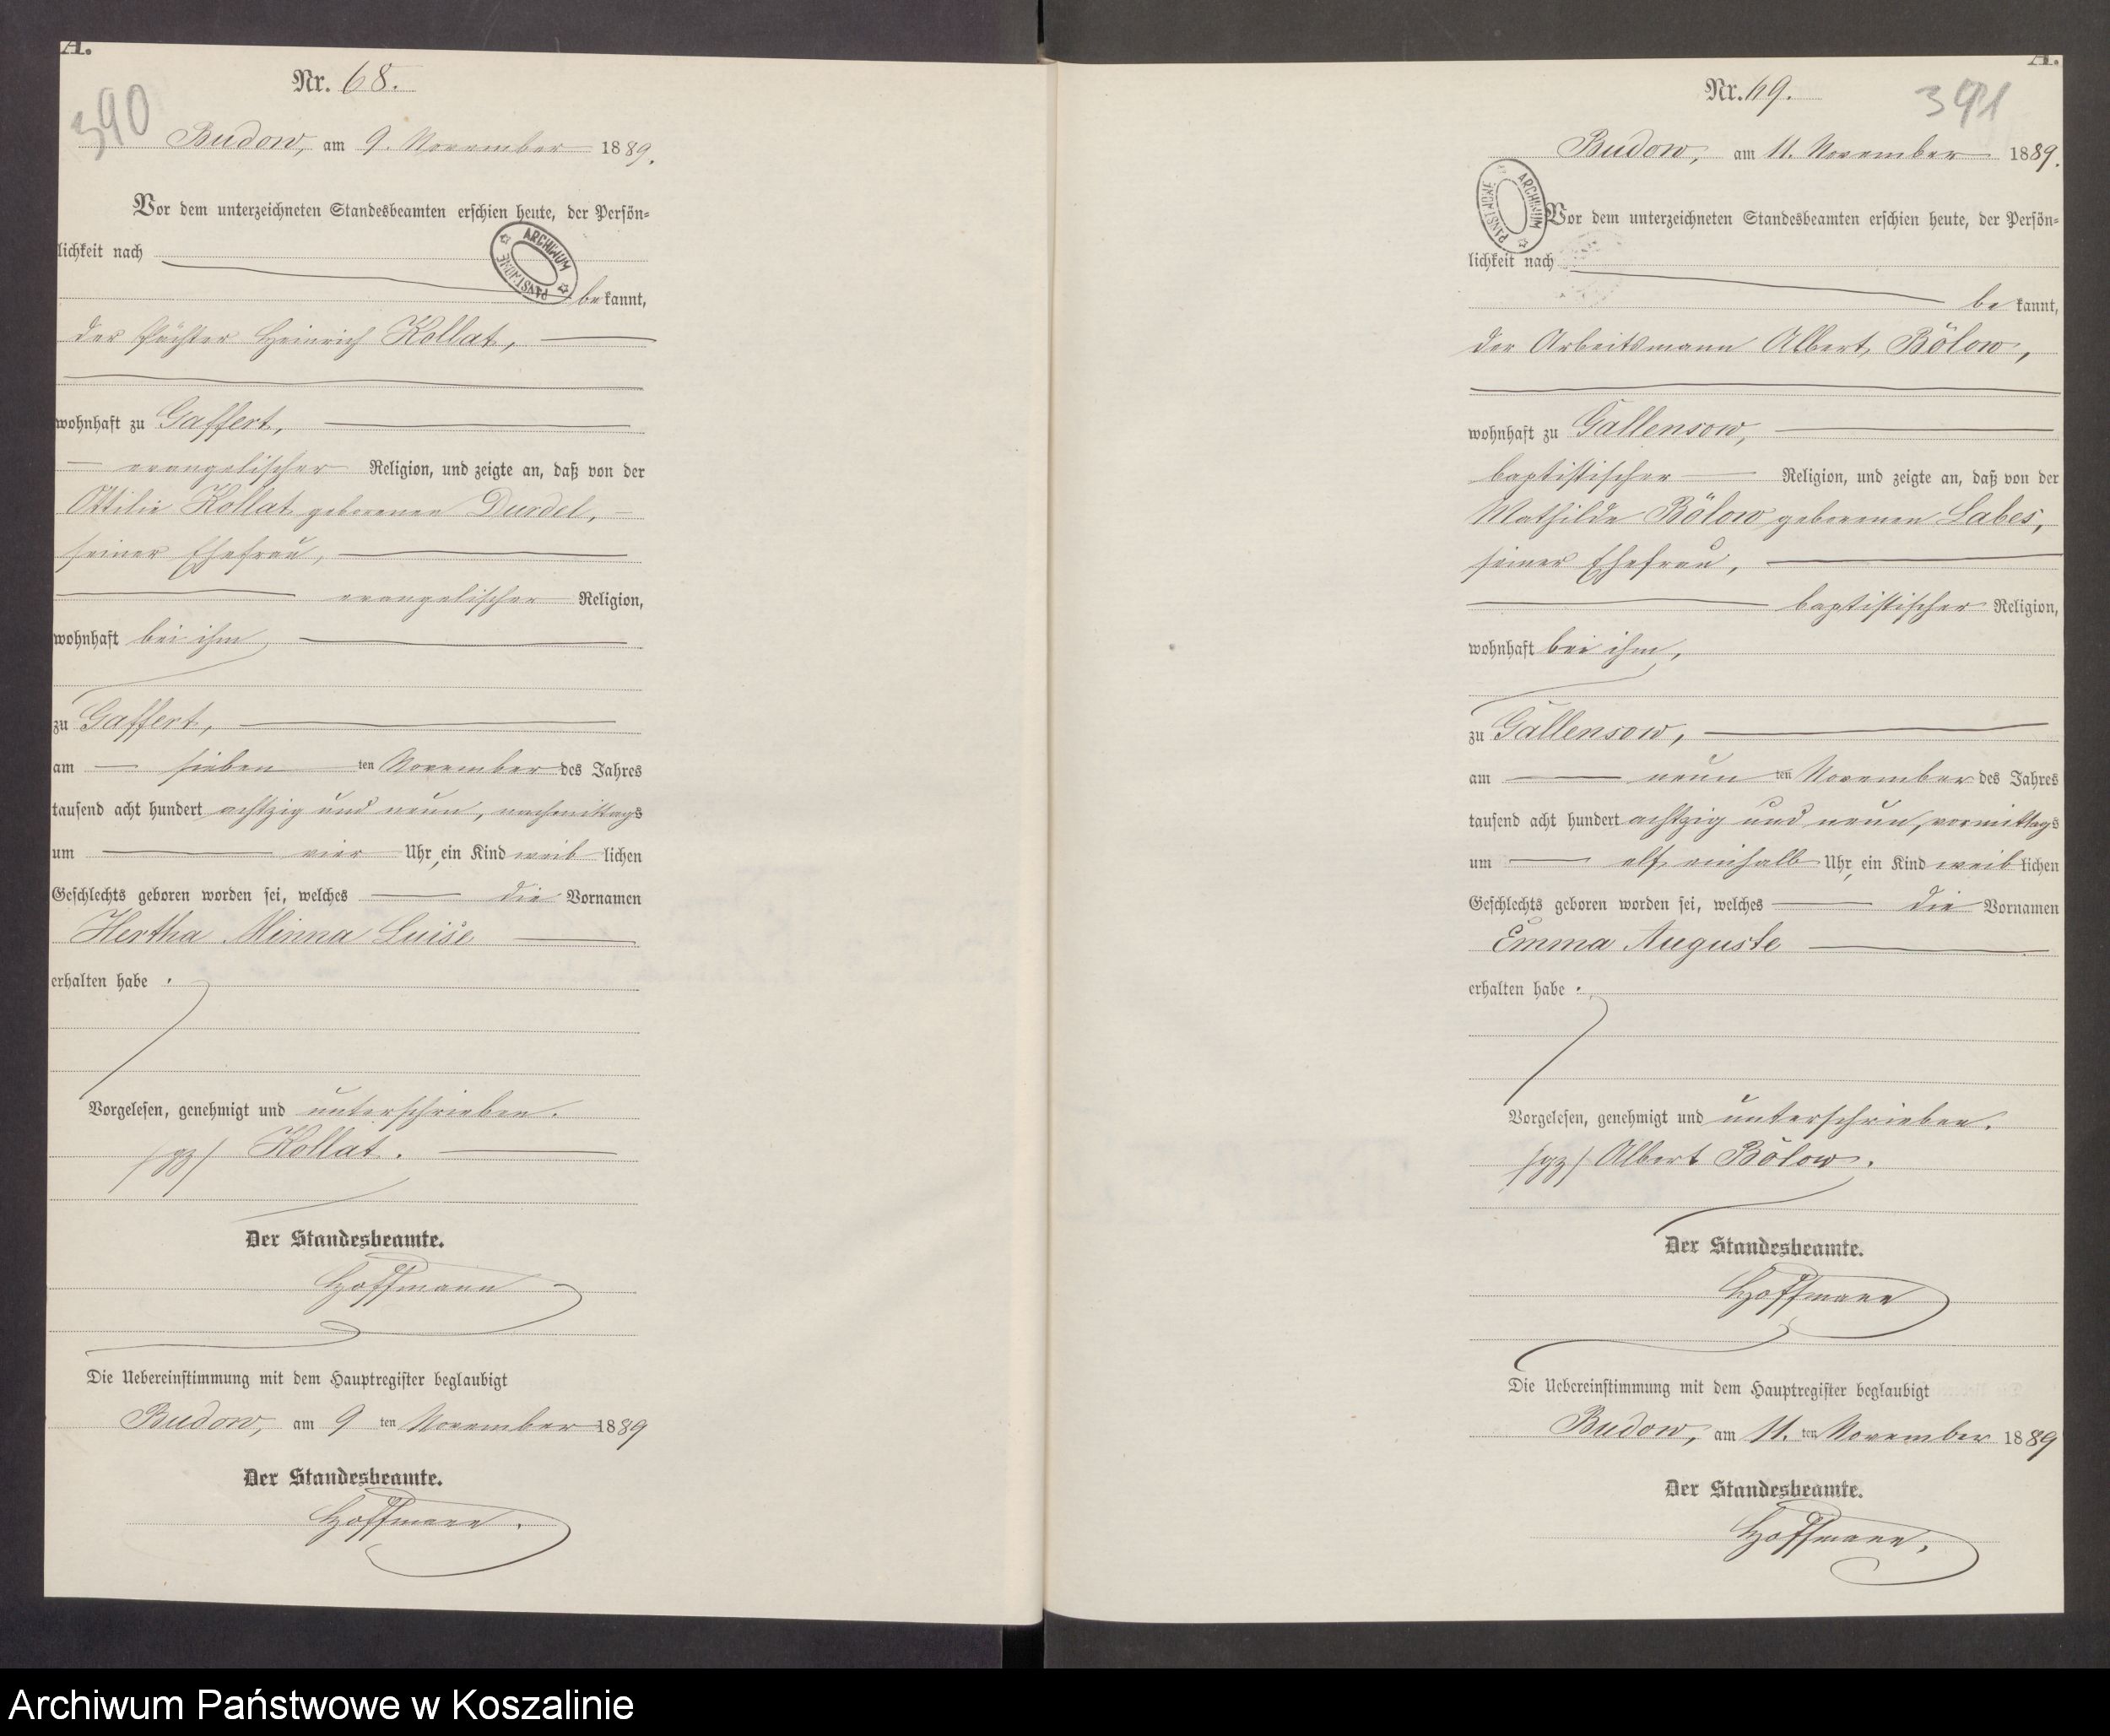 A.
Nr. 68.
390
Budow, am 9. November 1889.
Vor dem unterzeichneten Standesbeamten erschien heute, der Persön-
lichkeit nach
ARCHIWUM PAŃSTWOWE
bekannt,
der Pächter Heinrich Kollat,
wohnhaft zu Gaffert,
evangelischer Religion, und zeigte an, daß von der
Ottilie Kollat geborenen Durdel,
seiner Ehefrau,
evangelischer Religion,
wohnhaft bei ihm
zu Gaffert,
am sieben ten November des Jahres
tausend acht hundert achtzig und neun, nachmittags
um vier Uhr, ein Kind weiblichen
Geschlechts geboren worden sei, welches die Vornamen
Hertha Minna Luise
erhalten habe.
Vorgelesen, genehmigt und unterschrieben.
/gz/ Kollat.
Der Standesbeamte.
Hoffmann
Die Uebereinstimmung mit dem Hauptregister beglaubigt
Budow, am 9 ten November 1889
Der Standesbeamte.
Hoffmann.
A.
Nr. 69.
391
Budow, am 11. November 1889.
ARCHIWUM PAŃSTWOWE
Vor dem unterzeichneten Standesbeamten erschien heute, der Persön-
lichkeit nach
bekannt,
der Arbeitsmann Albert Bölow,
wohnhaft zu Gallensow,
baptistischer Religion, und zeigte an, daß von der
Mathilde Bölow geborenen Labes,
seiner Ehefrau,
baptistischer Religion,
wohnhaft bei ihm,
zu Gallensow,
am neun ten November des Jahres
tausend acht hundert achtzig und neun, vormittags
um elf einhalb Uhr, ein Kind weiblichen
Geschlechts geboren worden sei, welches die Vornamen
Emma Auguste
erhalten habe.
Vorgelesen, genehmigt und unterschrieben.
/gz/ Albert Bölow.
Der Standesbeamte.
Hoffmann
Die Uebereinstimmung mit dem Hauptregister beglaubigt
Budow, am 11. ten November 1889
Der Standesbeamte.
Hoffmann.
Archiwum Państwowe w Koszalinie